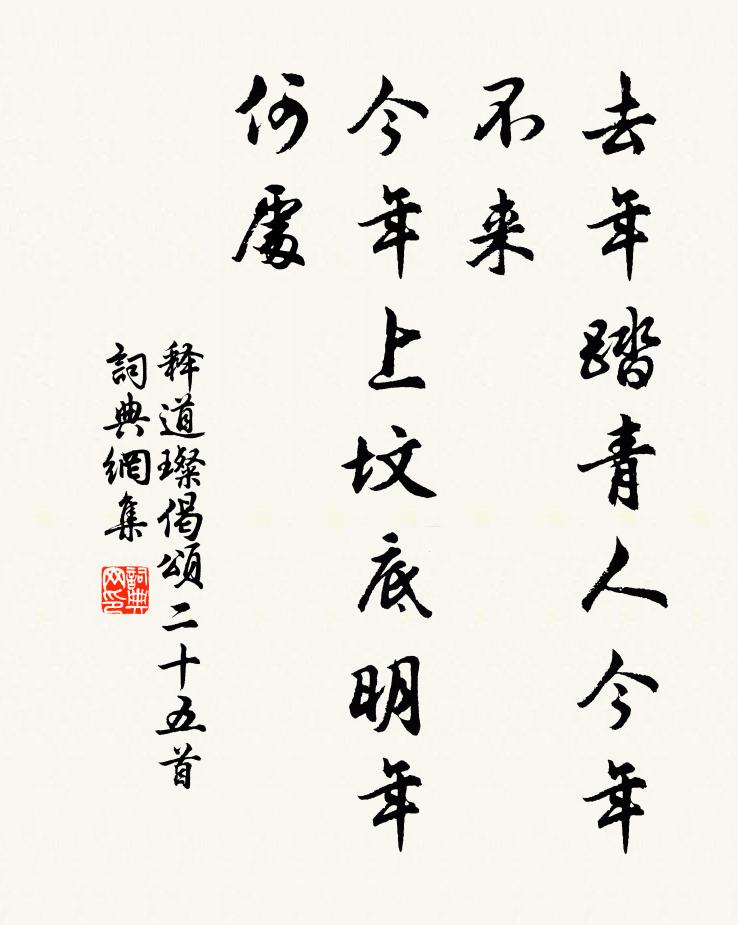 去年踏青人今年
不来
今年上坟底明年
何處
释道璨偈頌二十五首
詞典網集
詞典
网印